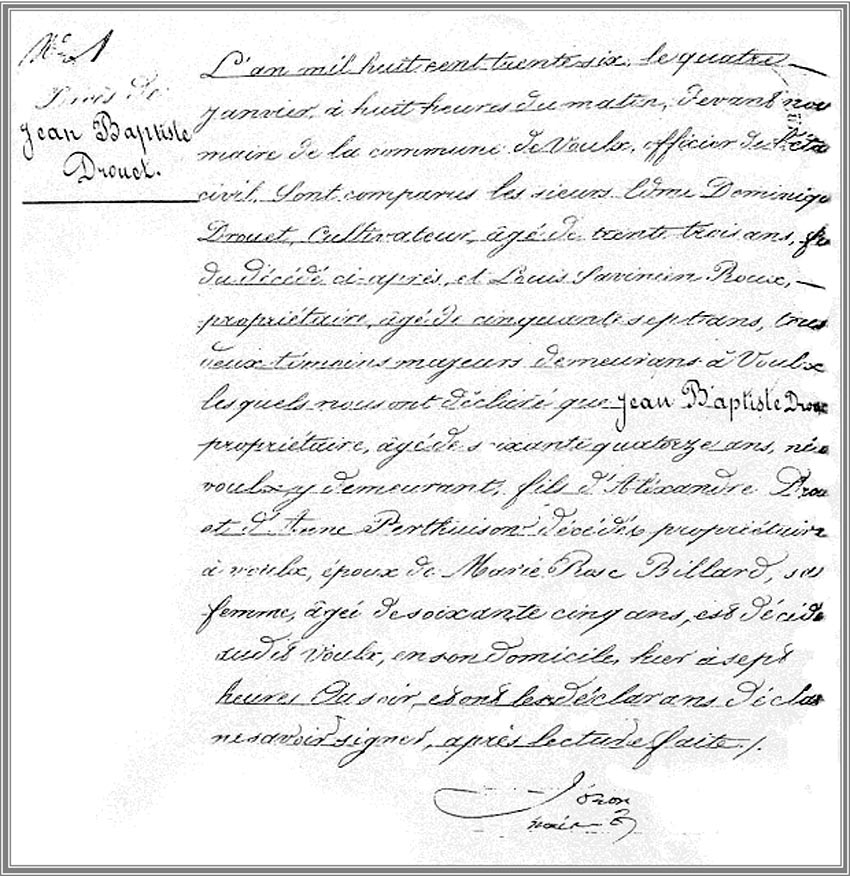 N° 1
Décès de
Jean Baptiste
Drouet.
L'an mil huit cent trente six, le quatre
janvier, à huit heures du matin, devant nou
maire de la commune de Voulx, officier de l'éta
civil, sont comparus les sieurs Edme Dominiqu
Drouet, Cultivateur, âgé de trente trois ans, fi
du décédé ci-après, et Louis Savinien Roux,
propriétaire, âgé de cinquante sept ans, tous
deux témoins majeurs demeurans à Voulx
lesquels nous ont déclaré que Jean Baptiste Droue
propriétaire, âgé de soixante quatorze ans, né à
voulx y demeurant, fils d'Alexandre Drou
et d'Anne Perthuison décédés propriétaire
à voulx, époux de Marie Rose Billard, sa
femme, âgée de soixante cinq ans, est décédé
audit Voulx, en son domicile, hier à sept
heures du soir, et ont les déclarans décla
ne savoir signer, après lecture faite ./.
maire